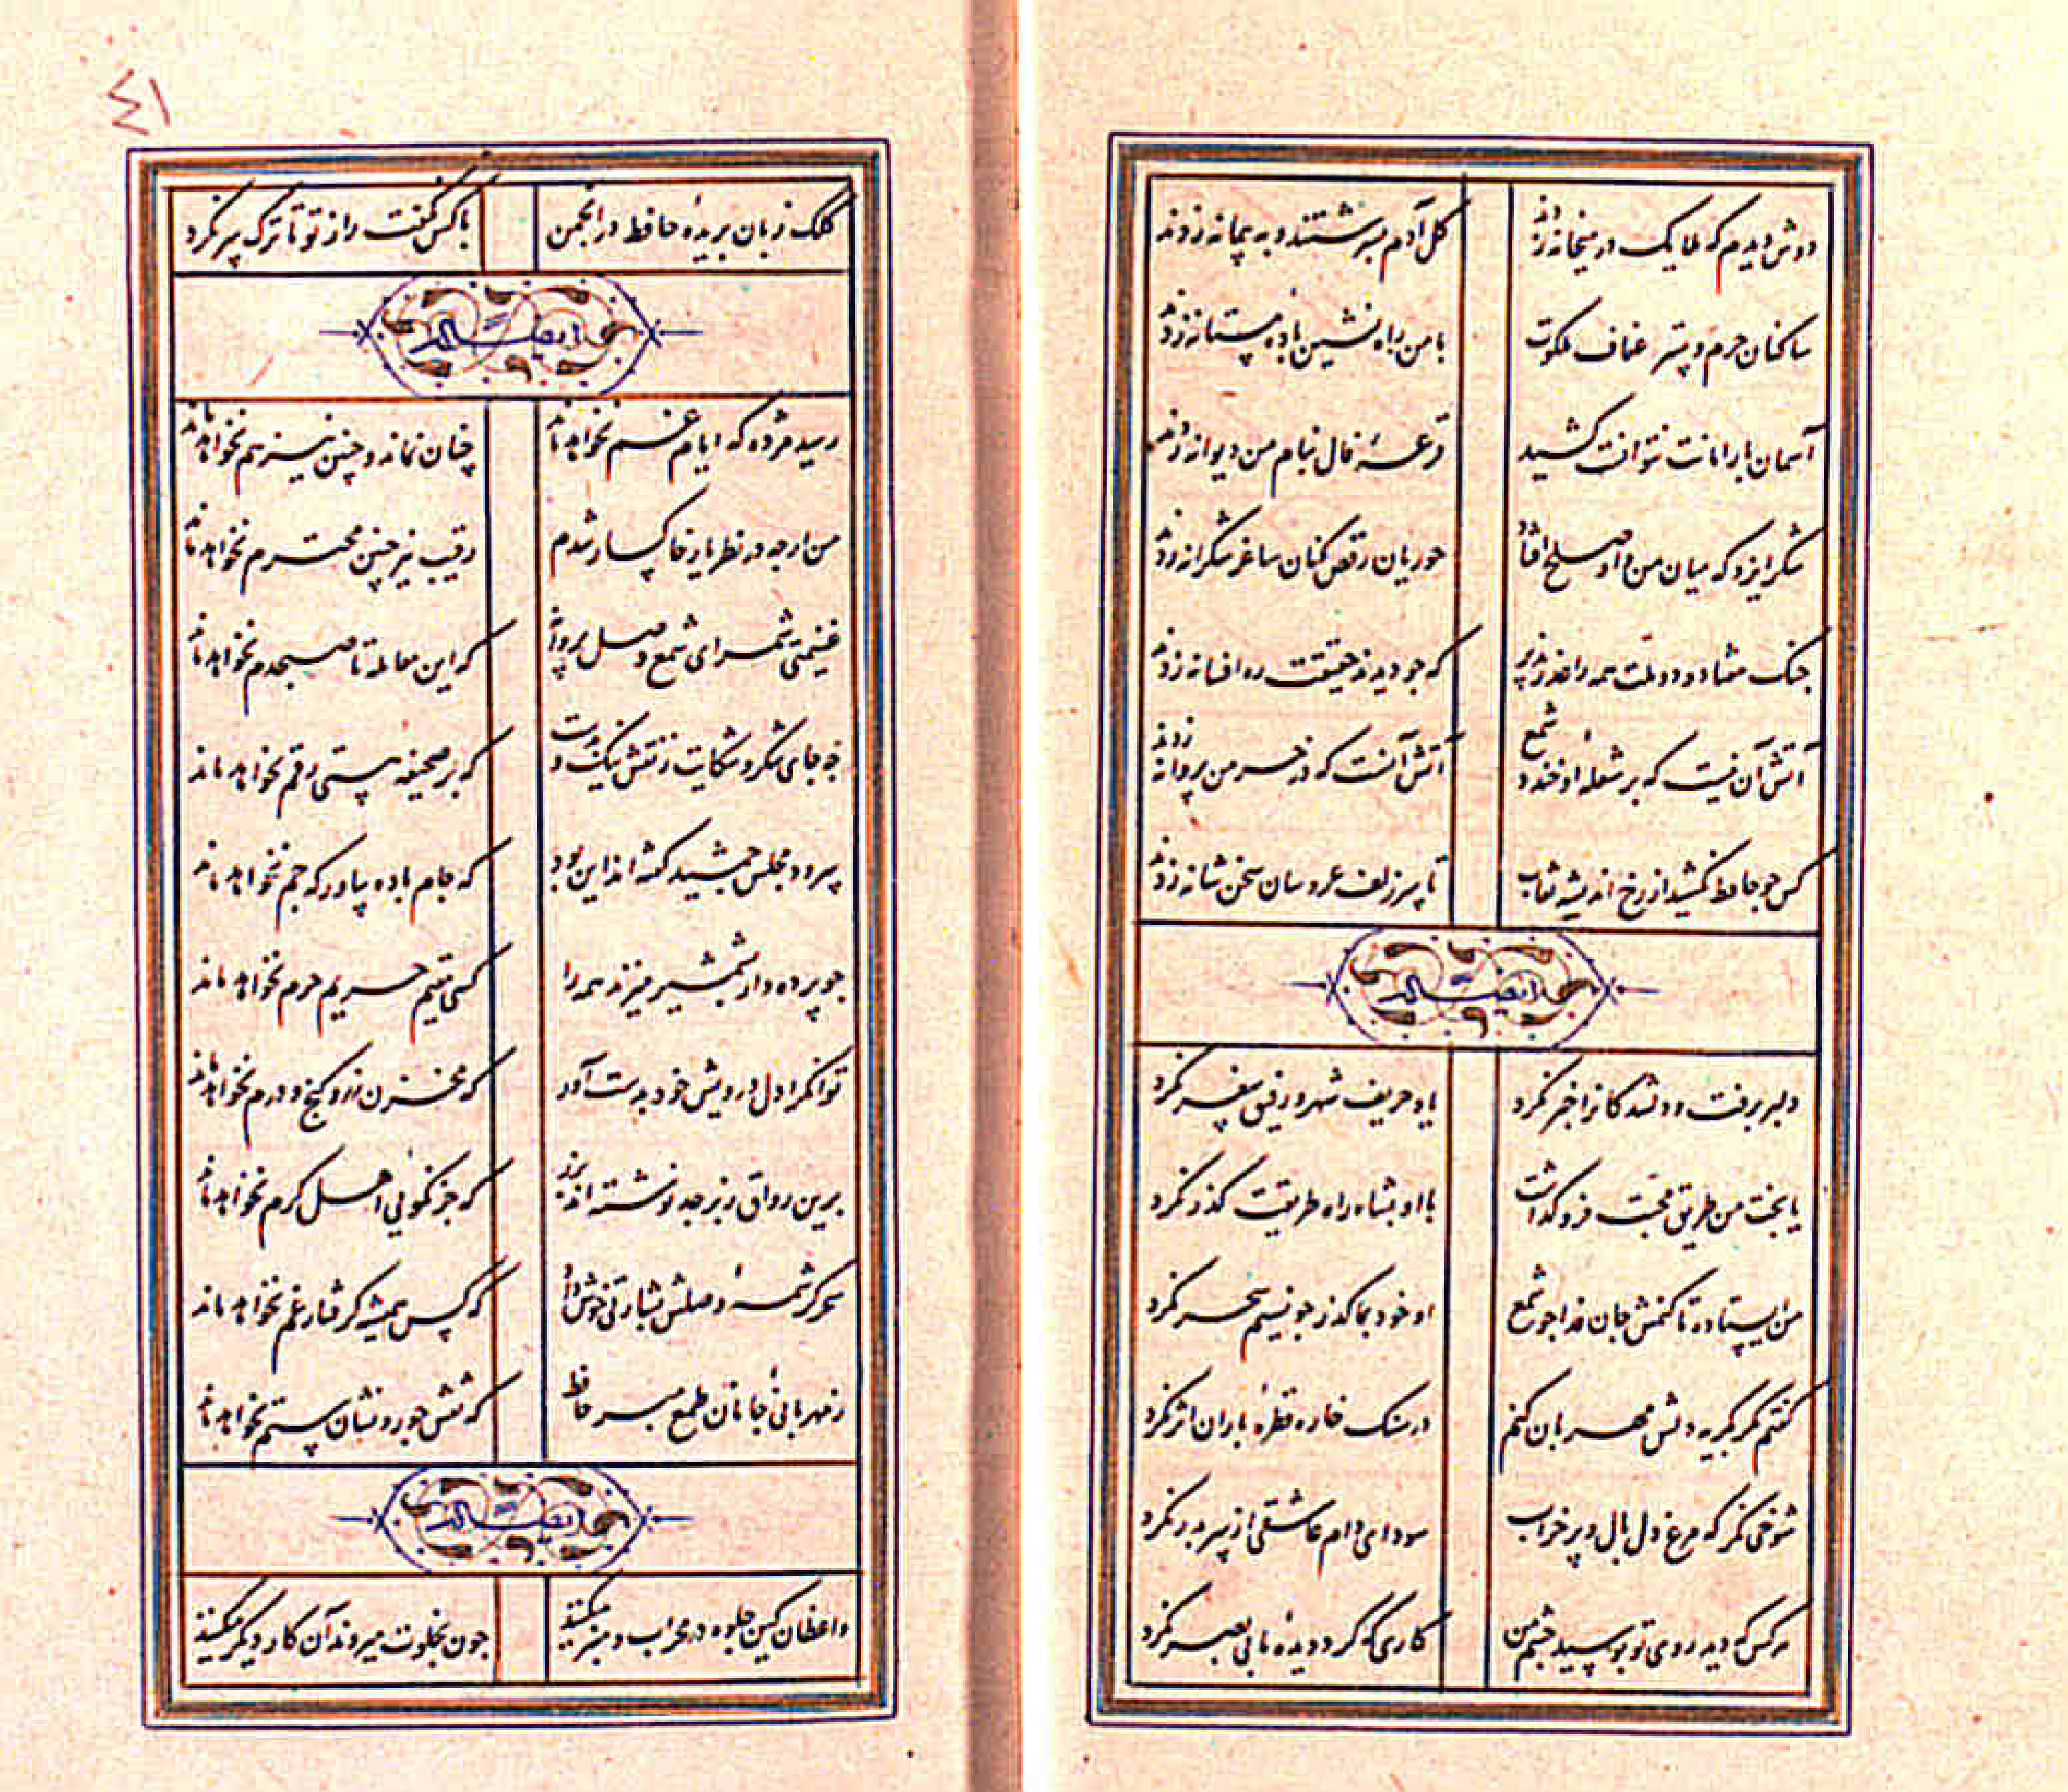 دوش دیدم که ملایک در میخانه زدند گل آدم بسرشتند و به پیمانه زدند
ساکنان حرم و ستر عفاف ملکوت با من راه نشین باده مستانه زدند
آسمان بار امانت نتوانست کشید قرعهٔ فال بنام من دیوانه زدند
شکر ایزد که میان من و او صلح افتاد حوریان رقص کنان ساغر شکرانه زدند
جنک هفتاد و دو ملت همه را عذر پذیر که جو دیدند حقیقت ره افسانه زدند
آتش آن نیست که بر شعلهٔ او خندد شمع آتش آنست که در خرمن پروانه زدند
کس جو حافظ نکشید از رخ اندیشه نقاب تا سر زلف عروسان سخن شانه زدند
ایضاً له
دلبر برفت و دلشدکانرا خبر نکرد یاد حریف شهر و رفیق سفر نکرد
یا بخت من طریق محبت فروکذاشت یا او بشاه راه طریقت کذر نکرد
من ایستاده تا کنمش جان فدا جو شمع او خود بما کذر جو نسیم سحر نکرد
کفتم مکر بکریه دلش مهربان کنم در سنک خاره قطرهٔ باران اثر نکرد
شوخی نکر که مرغ دل بال و پر خراب سودای دام عاشقی از سر بدر نکرد
هرکس که دید روی تو بوسید جشم من کاری که کرد دیدهٔ ما بی بصر نکرد
٤١
کلک زبان بریدهٔ حافظ در انجمن با کس نکفت راز تو تا ترک سر نکرد
ایضاً له
رسید مژده که ایام غم نخواهد ماند چنان نماند و چنین نیز هم نخواهد ماند
من ارجه در نظر یار خاکسار شدم رقیب نیز چنین محترم نخواهد ماند
غنیمتی شمر ای شمع وصل پروانه که این معامله تا صبحدم نخواهد ماند
جه جای شکر و شکایت ز نقش نیک و بدست که بر صحیفه هستی رقم نخواهد ماند
سرود مجلس جمشید کفته اند این بود که جام باده بیاور که جم نخواهد ماند
جو پرده دار بشمشیر میزند همه را کسی مقیم حریم حرم نخواهد ماند
توانکرا دل درویش خود بدست آور که مخزن زر و کنج و درم نخواهد ماند
برین رواق زبرجد نوشته اند بزر که جز نکویی اهل کرم نخواهد ماند
سحر کرشمهٔ وصلش بشارتی خوش داد که کس همیشه کرفتار غم نخواهد ماند
ز مهربانی جانان طمع مبر حافظ که نقش جور و نشان ستم نخواهد ماند
ایضاً له
واعظان کین جلوه در محراب و منبر میکنند جون بخلوت میروند آن کار دیکر میکنند